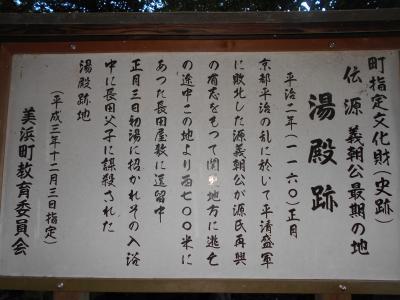 町指定文化財(史跡)
伝 源 義朝公最期の地
湯殿跡
平治二年(一一六〇)正月
京都平治の乱に於いて平清盛軍
に敗北した源義朝公が源氏再興
の有志をもって関東地方に逃走
の途中この地より西七〇〇米に
あつた長田屋敷に逗留中
正月三日初湯に招かれその入浴
中に長田父子に謀殺された
湯殿跡地
(平成三年十二月三日指定)
美浜町教育委員会